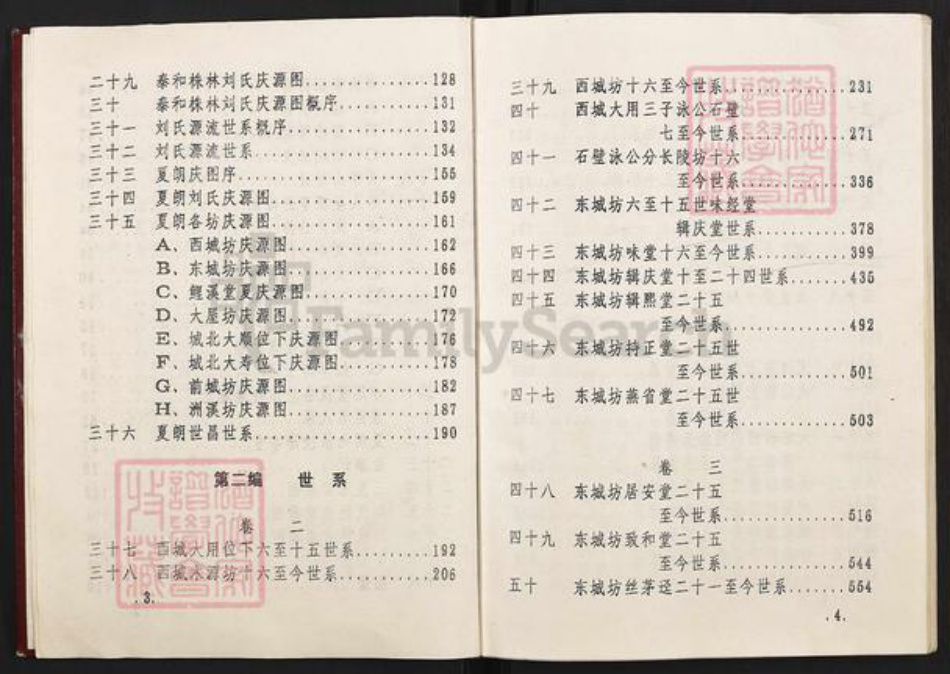 二十九 泰和株林刘氏庆源图................128
三十 泰和株林刘氏庆源图概序...........131
三十一 刘氏源流世系概序..................132
三十二 刘氏源流世系......................134
三十三 夏朗庆图序........................155
三十四 夏朗刘氏庆源图....................159
三十五 夏朗各坊庆源图....................161
A、西城坊庆源图..................162
B、东城坊庆源图..................166
C、鲤溪堂夏庆源图................170
D、大屋坊庆源图..................172
E、城北大顺位下庆源图............176
F、城北大寿位下庆源图............178
G、前城坊庆源图..................182
H、洲溪坊庆源图..................187
三十六 夏朗世昌世系......................190
第二编 世系
卷二
三十七 西城大用位下六至十五世系.........192
三十八 西城本源坊十六至今世系...........206
.3.
三十九 西城坊十六至今世系...............231
四十 西城大用三子泳公石壁
七至今世系.............271
四十一 石壁泳公分长陵坊十六
至今世系.............336
四十二 东城坊六至十五世味经堂
辑庆堂世系...........378
四十三 东城坊味堂十六至今世系...........399
四十四 东城坊辑庆堂十至二十四世系.......435
四十五 东城坊辑熙堂二十五
至今世系...............492
四十六 东城坊持正堂二十五世
至今世系.............501
四十七 东城坊燕省堂二十五世
至今世系.............503
卷三
四十八 东城坊居安堂二十五
至今世系...............516
四十九 东城坊致和堂二十五
至今世系...............544
五十 东城坊丝茅迳二十一至今世系.......554
.4.
FamilySearch